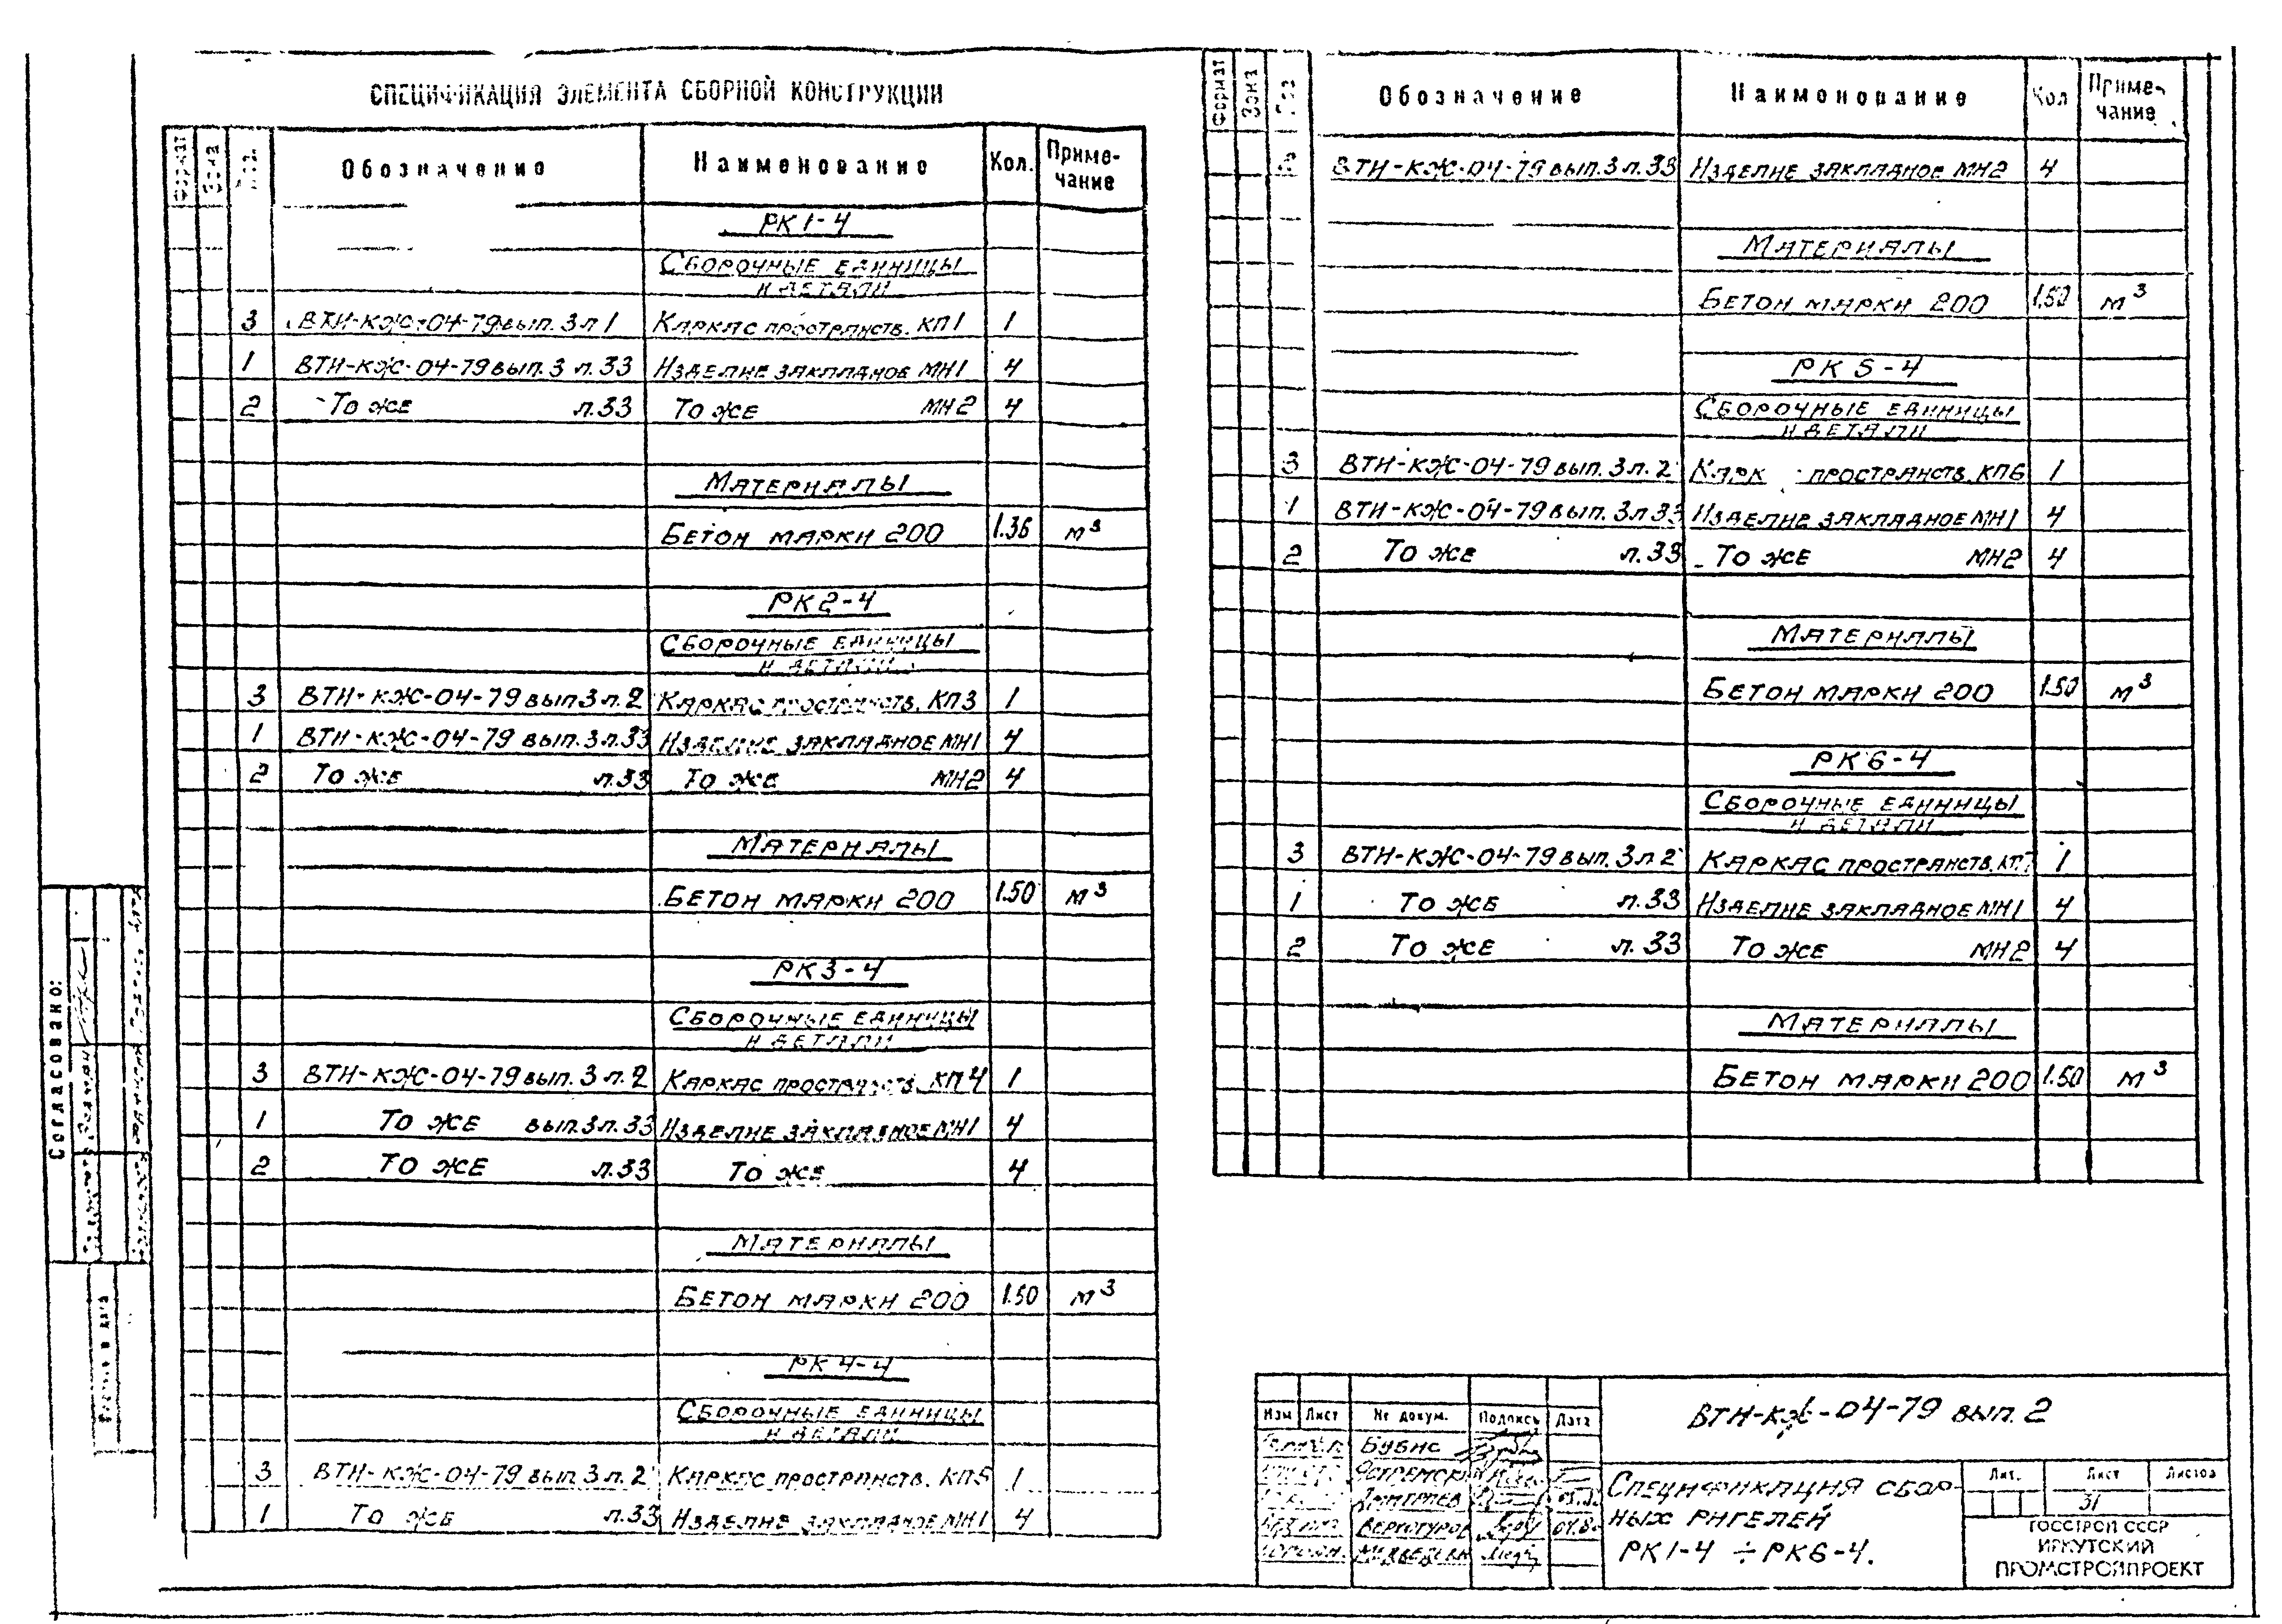 СПЕЦИФИКАЦИЯ ЭЛЕМЕНТА СБОРНОЙ КОНСТРУКЦИИ
Формат Зона Поз. Обозначение Наименование Кол. Приме-
чание
РК1-4
Сборочные единицы
и детали
3 ВТИ-КЖ-04-79 вып. 3 л 1 Каркас пространств. КП1 1
1 ВТИ-КЖ-04-79 вып. 3 л. 33 Изделие закладное МН1 4
2 То же л.33 То же МН2 4
Материалы
Бетон марки 200 1.36 м³
РК2-4
Сборочные единицы
и детали
3 ВТИ-КЖ-04-79 вып 3 л. 2 Каркас пространств. КП3 1
1 ВТИ-КЖ-04-79 вып. 3 л. 33 Изделие закладное МН1 4
2 То же л.33 То же МН2 4
Материалы
Бетон марки 200 1.50 м³
РК3-4
Сборочные единицы
и детали
3 ВТИ-КЖ-04-79 вып. 3 л. 2 Каркас пространств. КП4 1
1 То же вып. 3 л. 33 Изделие закладное МН1 4
2 То же л.33 То же 4
Материалы
Бетон марки 200 1.50 м³
РК4-4
Сборочные единицы
и детали
3 ВТИ-КЖ-04-79 вып 3 л. 2 Каркас пространств. КП5 1
1 То же л.33 Изделие закладное МН1 4
Формат Зона Поз Обозначение Наименование Кол Приме-
чание
2 ВТИ-КЖ-04-79 вып. 3 л. 33 Изделие закладное МН2 4
Материалы
Бетон марки 200 1.50 м³
РК5-4
Сборочные единицы
и детали
3 ВТИ-КЖ-04-79 вып. 3 л. 2 Карк пространств. КП6 1
1 ВТИ-КЖ-04-79 вып. 3 л 33 Изделие закладное МН1 4
2 То же л.33 То же МН2 4
Материалы
Бетон марки 200 1.50 м³
РК6-4
Сборочные единицы
и детали
3 ВТИ-КЖ-04-79 вып. 3 л 2 Каркас пространств. КП7 1
1 То же л.33 Изделие закладное МН1 4
2 То же л.33 То же МН2 4
Материалы
Бетон марки 200 1.50 м³
Согласовано:
Изм Лист № докум. Подпись Дата
Бубис
Ястремск
Дмитриев
Верхотуров 04.80
Медведева
ВТИ-КЖ-04-79 вып. 2
Спецификация сбор-
ных ригелей
РК1-4 ÷ РК6-4.
Лит. Лист Листов
31
ГОССТРОЙ СССР
ИРКУТСКИЙ
ПРОМСТРОЙПРОЕКТ